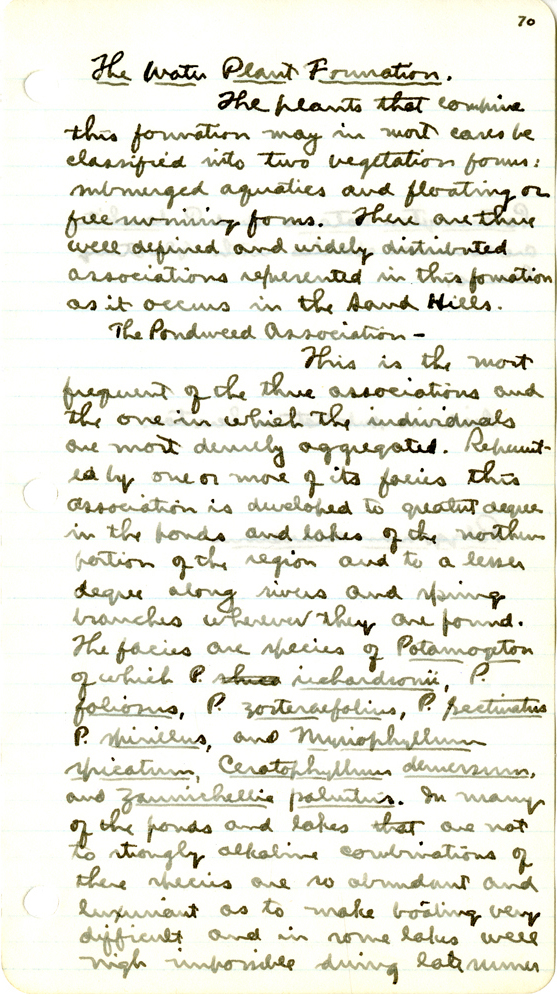 70
The Water Plant Formation.
The plants that comprise
this formation may in most cases be
classified into two vegetation forms:
submerged aquatics and floating or
free swimming forms. There are three
well defined and widely distributed
associations represented in this fomation
as it occurs in the Sand Hills.
The Pondweed Association -
This is the most
frequent of the three associations and
the one in which the individuals
are most densely aggregated. Represent-
ed by one or more of its facies this
association is developed to greatest degree
in the ponds and lakes of the northern
portion of the region and to a lesser
degree along rivers and spring
branches wherever they are found.
The facies are species of Potamogeton
of which P. richardsonii, P.
foliosus, P. zosteraefolius, P. pectinatus
P. spirillus, and Myriophyllum
spicatum, Ceratophyllum demersum,
and Zannichellia palustris. In many
of the ponds and lakes that are not
to strongly alkaline combinations of
these species are so abundant and
luxuriant as to make boating very
difficult and in some lakes well
nigh impossible during late summer